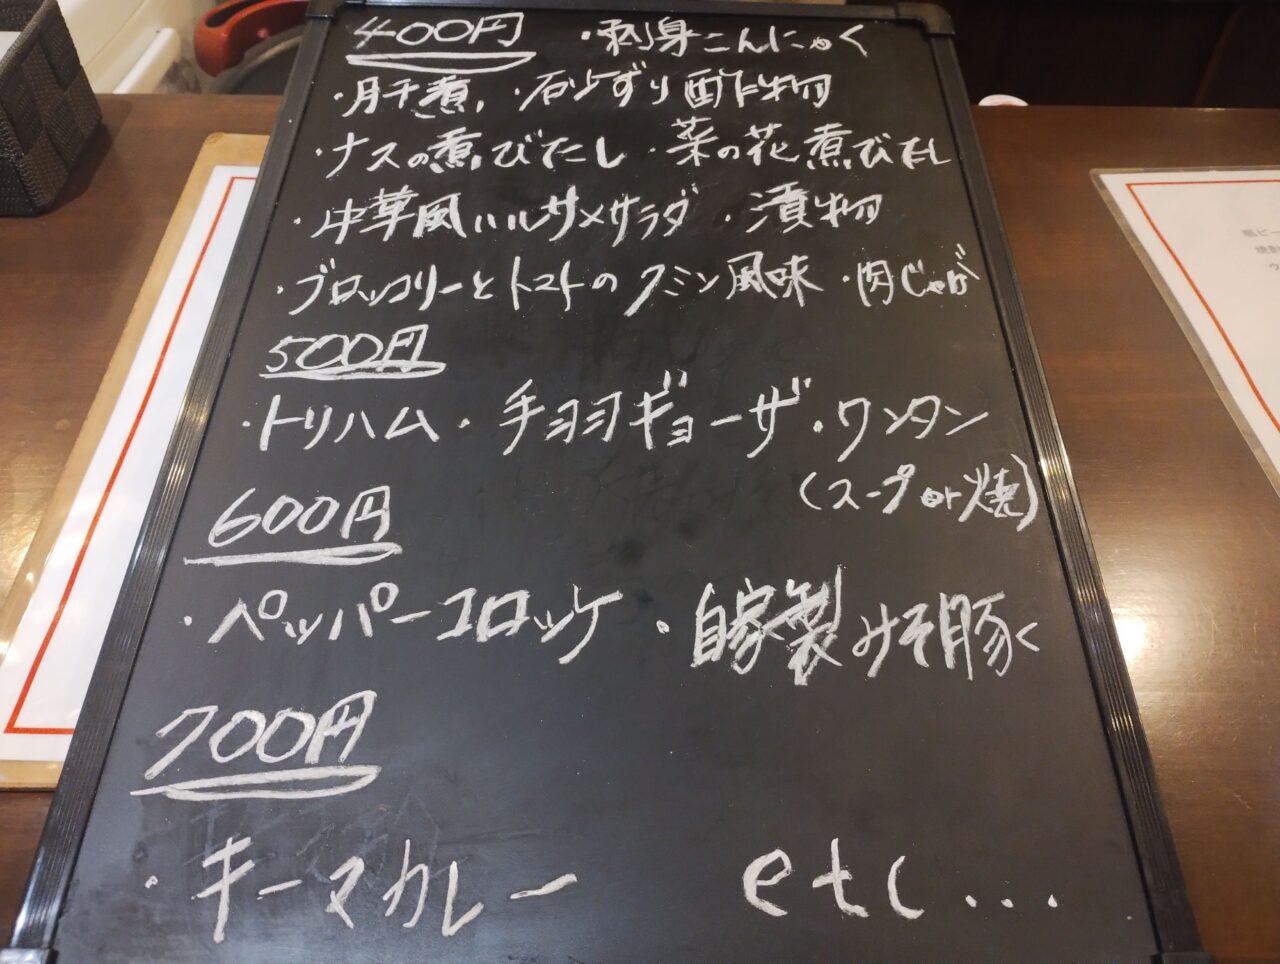 400円 ・刺身こんにゃく
・肝煮 ・砂ずり酢物
・ナスの煮びたし ・菜の花煮びたし
・中華風ハルサメサラダ ・漬物
・ブロッコリーとトマトのクミン風味 ・肉じゃが
500円
・トリハム ・チョヨギョーザ ・ワンタン
(スープor焼)
600円
・ペッパーコロッケ ・自家製みそ豚く
700円
・キーマカレー etc...